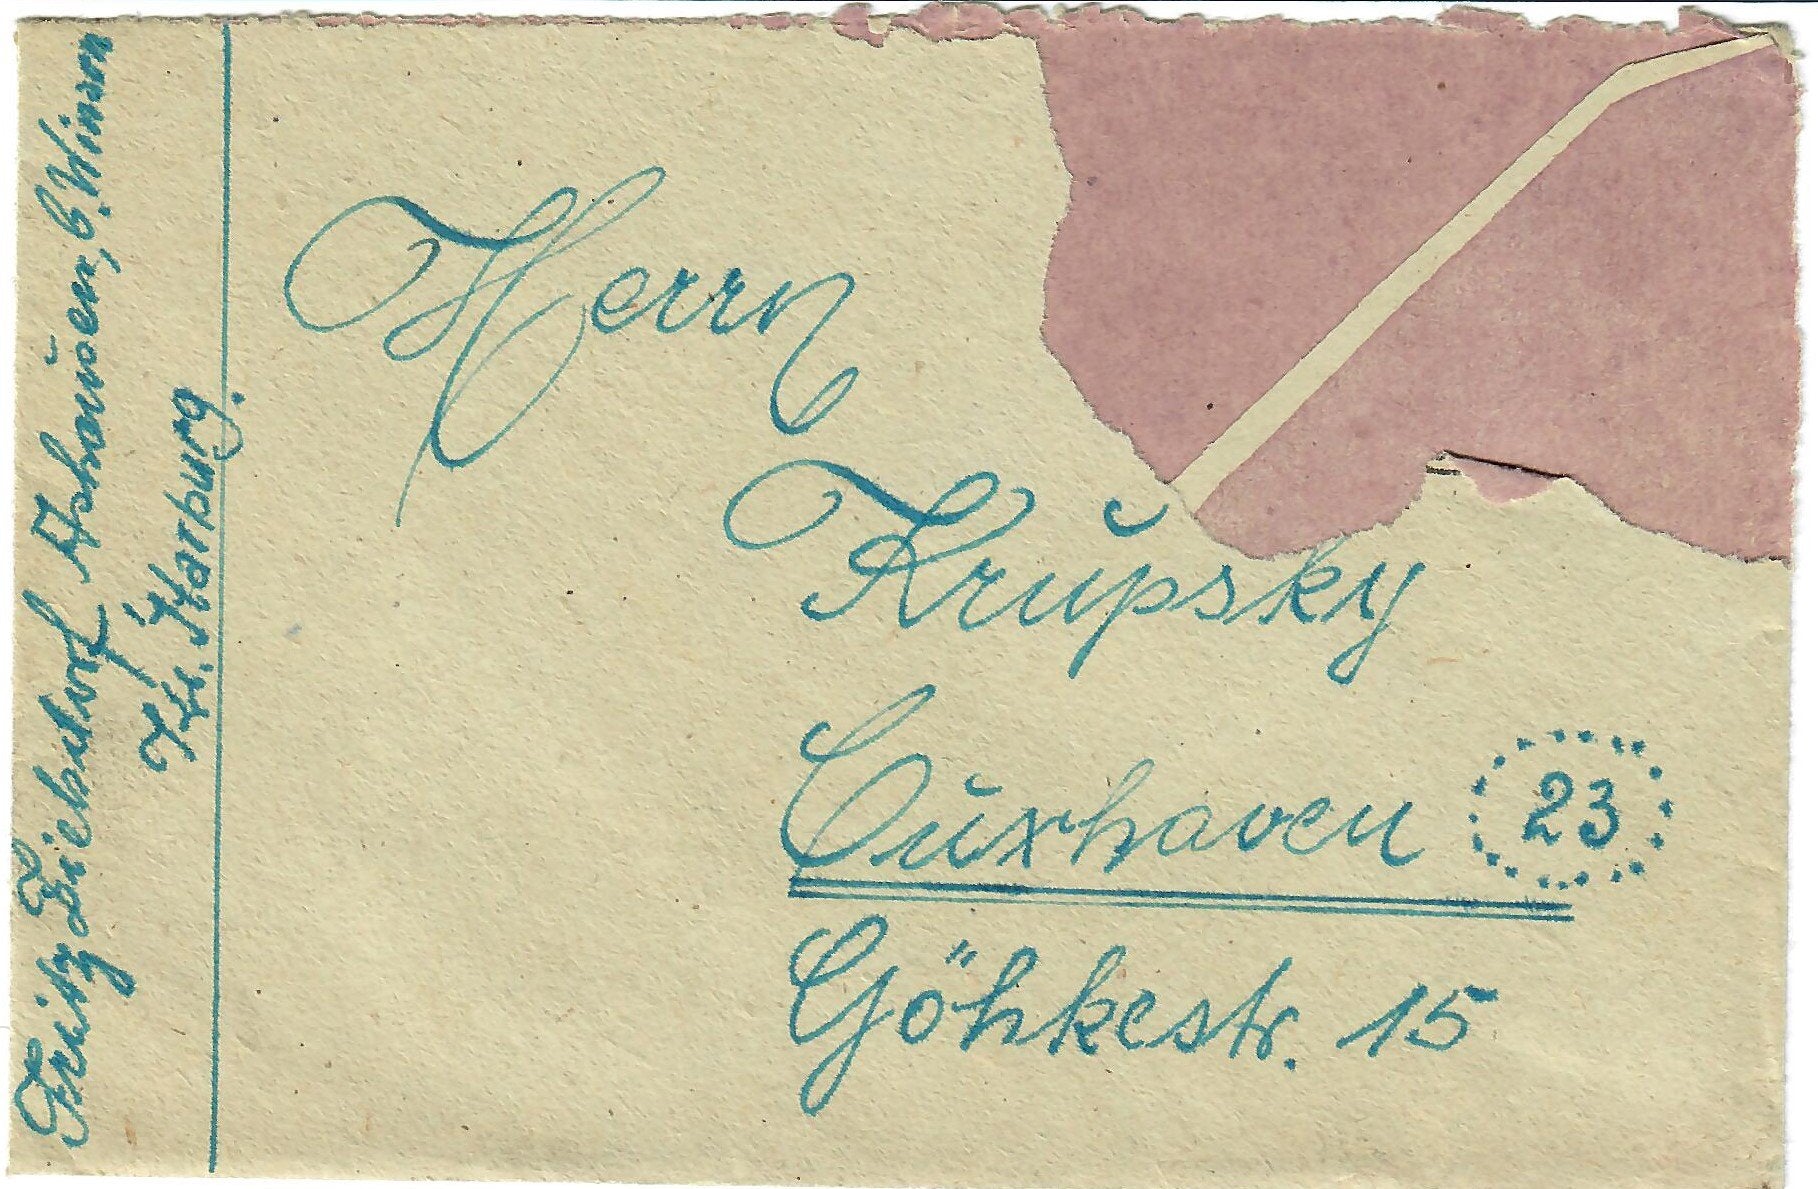 Fritz Ashausen, b. Winsen
Kr. Harburg.
Herrn
Krupsky
Cuxhaven 23
Göhkestr. 15